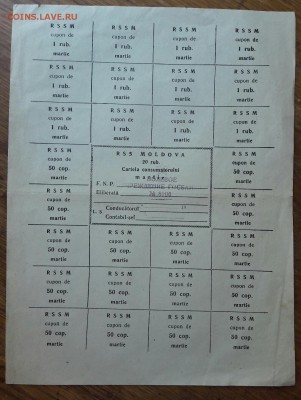 COINS.LAVE.RU
RSSM RSSM RSSM RSSM
cupon de cupon de cupon de cupon de
1 rub. 1 rub. 1 rub. 1 rub.
martie martie martie martie
RSSM RSSM RSSM RSSM
cupon de cupon de cupon de cupon de
1 rub. 1 rub. 1 rub. 1 rub.
martie martie martie martie
RSSM RSSM RSSM RSSM
cupon de cupon de cupon de cupon de
1 rub. 1 rub. 1 rub. 1 rub.
martie martie martie martie
RSSM
cupon de
50 cop.
martie
RSS MOLDOVA
20 rub.
Cartela consumatorului
martie
F.N.P.
Eliberată
Conducătorul
L. S.
Contabil-șef
RSSM
cupon de
50 cop.
martie
RSSM
cupon de
50 cop.
martie
RSSM
cupon de
50 cop.
martie
RSSM RSSM RSSM RSSM
cupon de cupon de cupon de cupon de
50 cop. 50 cop. 50 cop. 50 cop.
martie martie martie martie
RSSM RSSM RSSM RSSM
cupon de cupon de cupon de cupon de
50 cop. 50 cop. 50 cop. 50 cop.
martie martie martie martie
RSSM RSSM RSSM RSSM
cupon de cupon de cupon de cupon de
50 cop. 50 cop. 50 cop. 50 cop.
martie martie martie martie